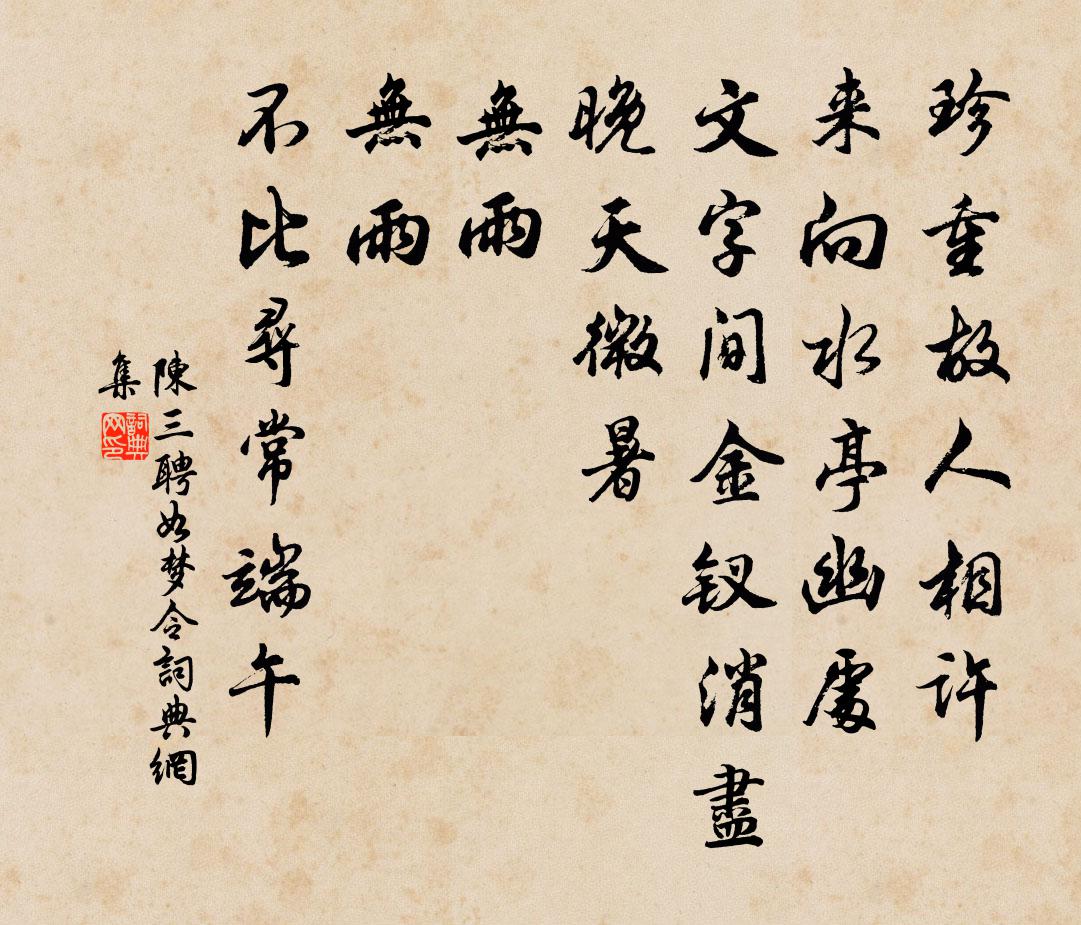 珍重故人相許
来向水亭幽處
文字間金釵消盡
晚天微暑
無雨
無雨
不比尋常端午
陳三聘如梦令詞典網
集
詞典网印